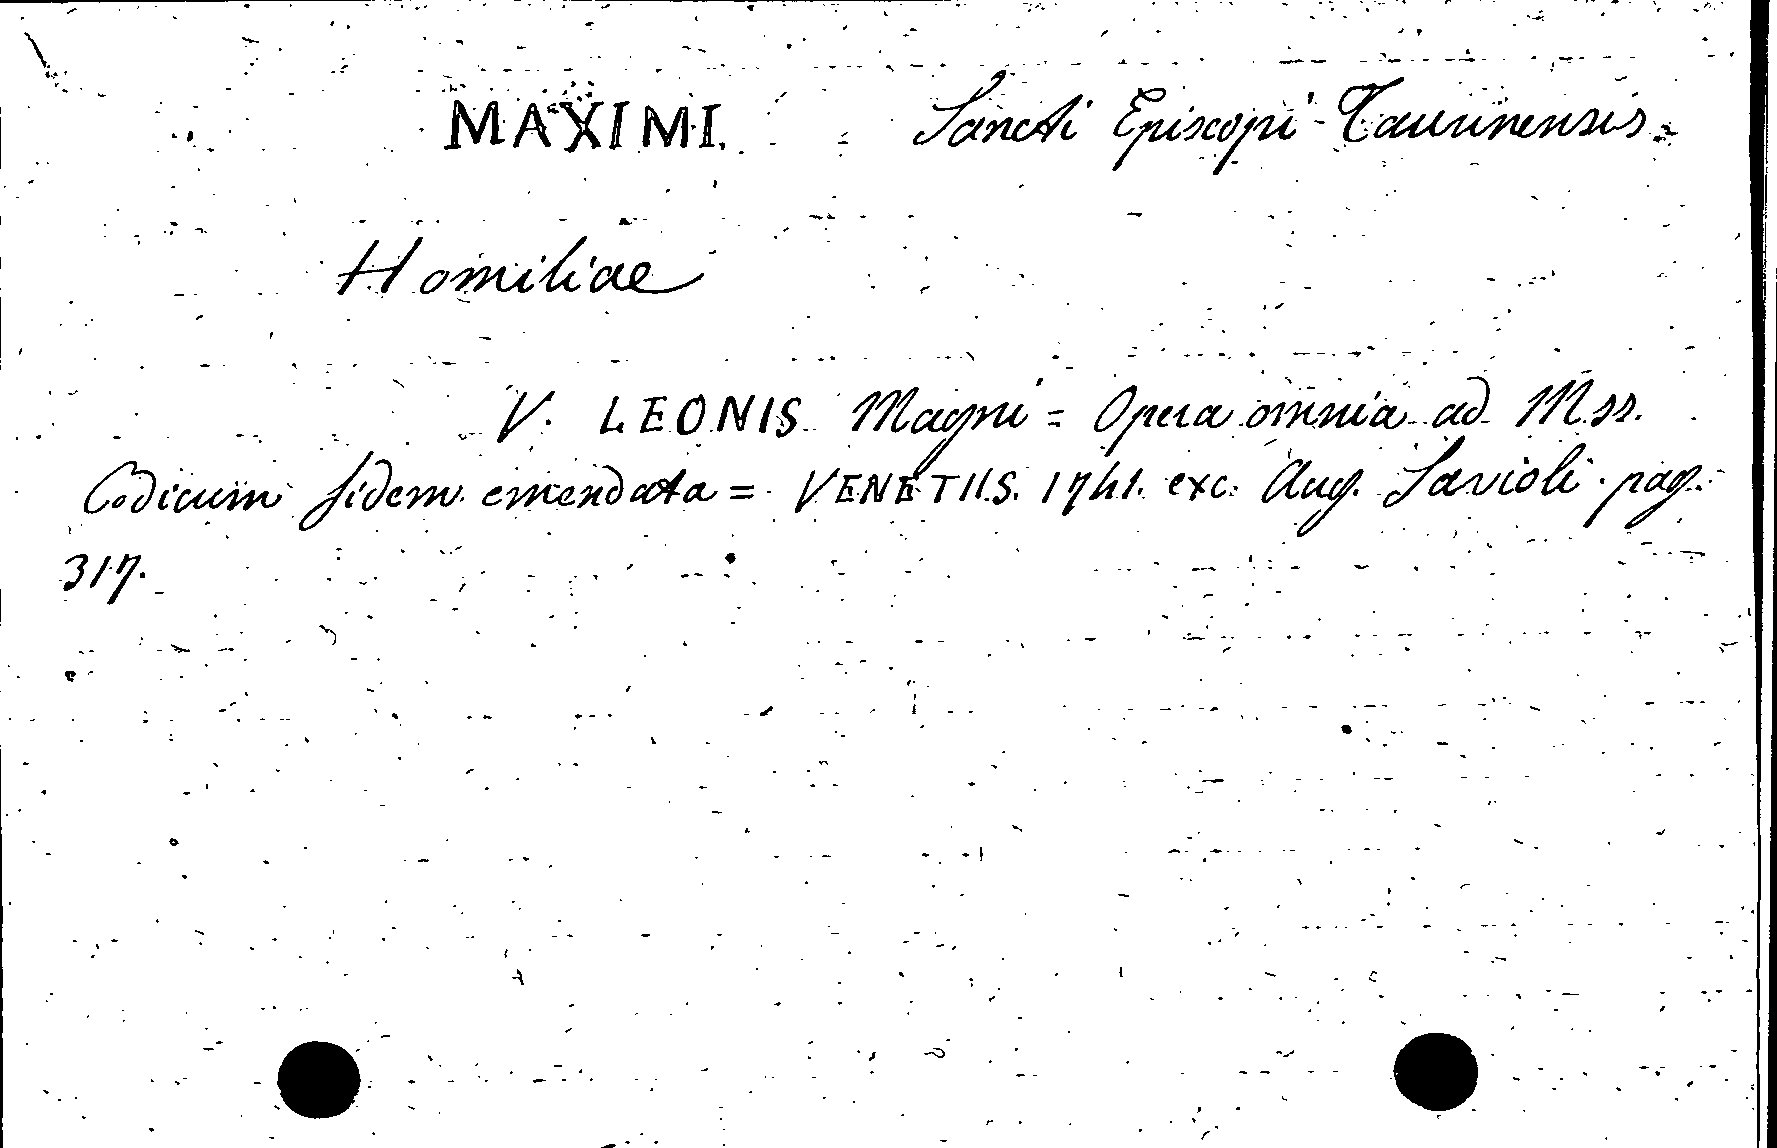 MAXIMI. Sancti Episcopi Taurinensis =
Homiliae
V. LEONIS Magni = Opera omnia ad Mss.
Codicum fidem emendata = VENETIIS. 1741. exc. Aug. Savioli. pag.
317.